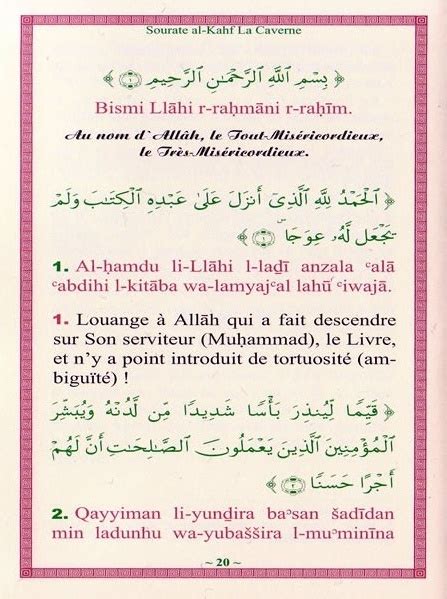 Sourate al-Kahf La Caverne
﴿ بِسْمِ اللَّهِ الرَّحْمَٰنِ الرَّحِيمِ ﴾
Bismi Llāhi r-raḥmāni r-raḥīm.
Au nom d'Allâh, le Tout-Miséricordieux,
le Très-Miséricordieux.
﴿ الْحَمْدُ لِلَّهِ الَّذِي أَنزَلَ عَلَىٰ عَبْدِهِ الْكِتَابَ وَلَمْ
يَجْعَل لَّهُ عِوَجَا ۜ ﴿١﴾
1. Al-ḥamdu li-Llāhi l-laḏī anzala ʿalā
ʿabdihi l-kitāba wa-lamyajʿal lahū ʿiwajā.
1. Louange à Allāh qui a fait descendre
sur Son serviteur (Muḥammad), le Livre,
et n'y a point introduit de tortuosité (am-
biguïté) !
﴿ قَيِّمًا لِّيُنذِرَ بَأْسًا شَدِيدًا مِّن لَّدُنْهُ وَيُبَشِّرَ
الْمُؤْمِنِينَ الَّذِينَ يَعْمَلُونَ الصَّالِحَاتِ أَنَّ لَهُمْ
أَجْرًا حَسَنًا ﴿٢﴾
2. Qayyiman li-yunḏira baʾsan šadīdan
min ladunhu wa-yubaššira l-muʾminīna
~ 20 ~